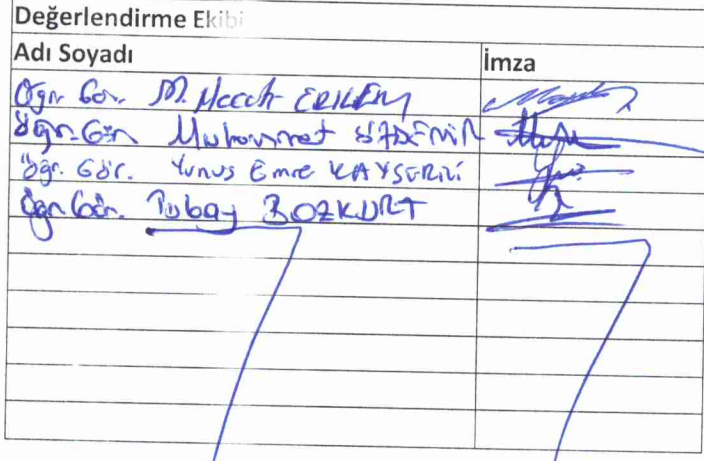 Değerlendirme Ekibi
Adı Soyadı İmza
Öğr. Gör. M.
Öğr. Gör. Muhammet
Öğr. Gör. Yunus Emre KAYSERİLİ
Öğr. Gör. Tubay BOZKURT